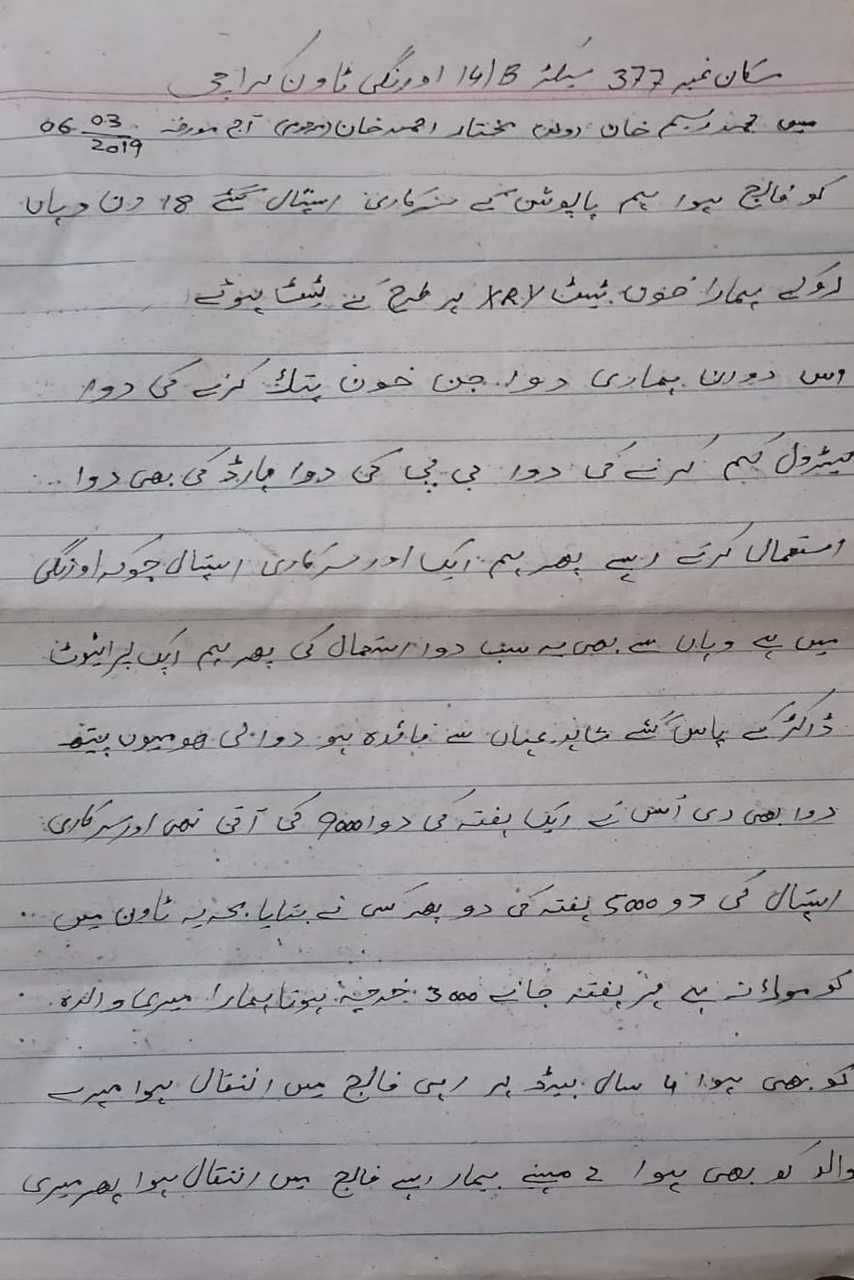 مکان نمبر 377 سیکٹر 14/B اورنگی ٹاون کراچی
میں محمد وسیم خان ولد مختار احمد خان (مرحوم) آج مورخہ 06 03 2019
کو فالج ہوا ہم پاپوش کے سرکاری اسپتال گئے 18 دن وہاں
روکے ہمارا خون ٹیسٹ XRY ہر طرح کے ٹیسٹ ہوئے
اس دورن ہماری دوا جن خون پتلا کرنے کی دوا
کرنے کی دوا بی پی کی دوا ہارڈ کی بھی دوا
استعمال کرتے رہے پھر ہم ایک اور سرکاری اسپتال جوکہ اورنگی
میں ہے وہاں سے بھی یہ سب دوا استعمال کی پھر ہم ایک پرائیوٹ
ڈاکٹر کے پاس گئے شاہد یہاں سے فائدہ ہو دوا لی ھومیوں پیتھ
دوا بھی دی اس نے ایک ہفتہ کی دوا 9000 کی آتی تھی اور سرکاری
اسپتال کی دو 5000 ہفتہ کی دو پھر کسی نے بتایا بحریہ ٹاون میں
کو مولانہ ہے ہر ہفتہ جانے 3000 خرچہ ہوتا ہمارا میری والدہ
کو بھی ہوا 4 سال بیڈ پر رہی فالج میں انتقال ہوا میرے
والد کو بھی ہوا 2 مہینے بیمار رہے فالج میں انتقال ہوا پھر میری